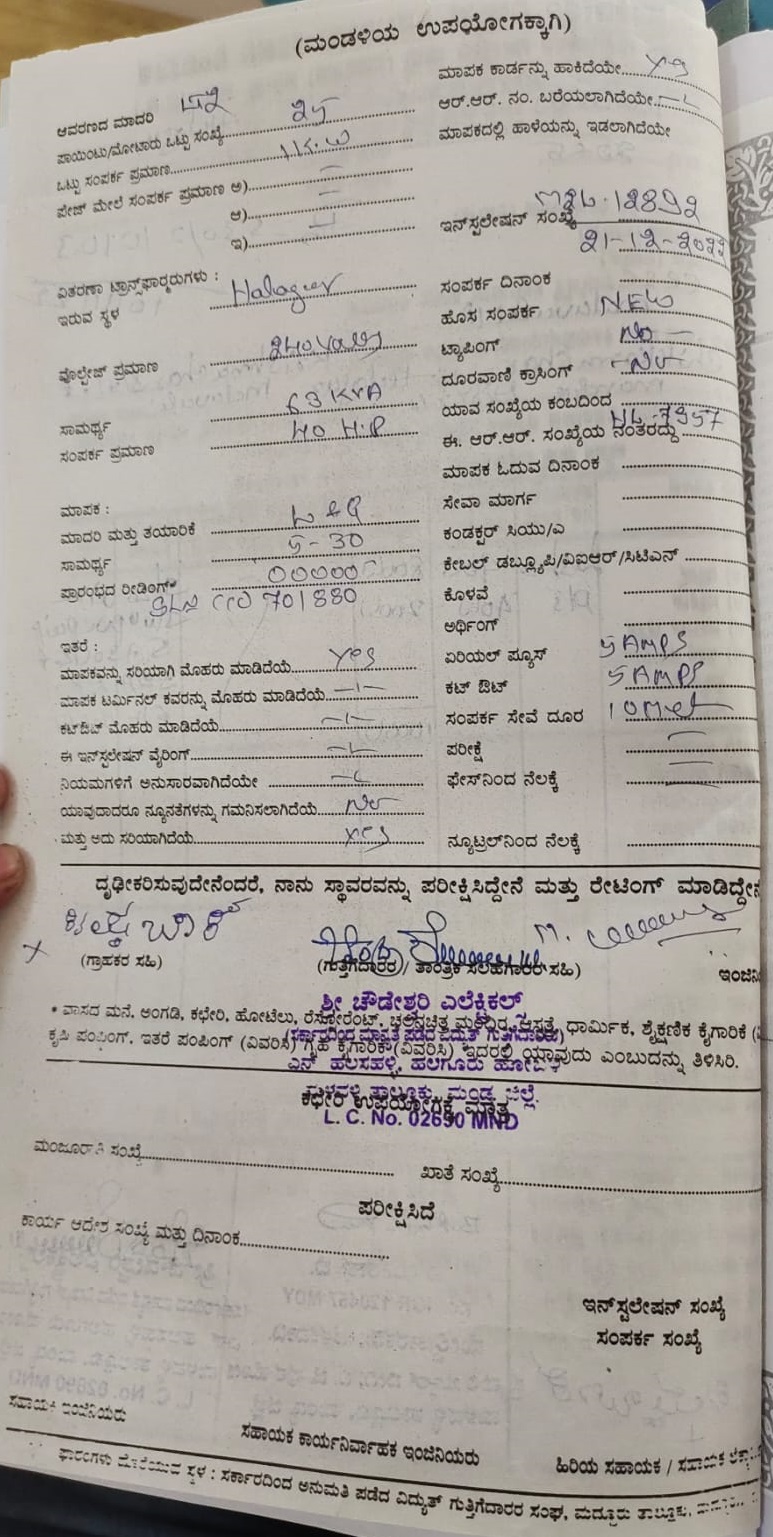 (ಮಂಡಳಿಯ ಉಪಯೋಗಕ್ಕಾಗಿ)
ಆವರಣದ ಮಾದರಿ
ಪಾಯಿಂಟು/ಮೋಟಾರು ಒಟ್ಟು ಸಂಖ್ಯೆ 25
ಒಟ್ಟು ಸಂಪರ್ಕ ಪ್ರಮಾಣ
ಪೇಜ್ ಮೇಲೆ ಸಂಪರ್ಕ ಪ್ರಮಾಣ ಅ)
ಆ)
ಇ)
ವಿತರಣಾ ಟ್ರಾನ್ಸ್‌ಫಾರ್ಮರುಗಳು :
ಇರುವ ಸ್ಥಳ Halaguru
ವೊಲ್ಟೇಜ್ ಪ್ರಮಾಣ 240
ಸಾಮರ್ಥ್ಯ 63 KVA
ಸಂಪರ್ಕ ಪ್ರಮಾಣ 40 H.P
ಮಾಪಕ :
ಮಾದರಿ ಮತ್ತು ತಯಾರಿಕೆ
ಸಾಮರ್ಥ್ಯ 5-30
ಪ್ರಾರಂಭದ ರೀಡಿಂಗ್ 00000
701880
ಇತರೆ :
ಮಾಪಕವನ್ನು ಸರಿಯಾಗಿ ಮೊಹರು ಮಾಡಿದೆಯೆ Yes
ಮಾಪಕ ಟರ್ಮಿನಲ್ ಕವರನ್ನು ಮೊಹರು ಮಾಡಿದೆಯೆ
ಕಟ್‌ಔಟ್ ಮೊಹರು ಮಾಡಿದೆಯೆ
ಈ ಇನ್‌ಸ್ಟಲೇಷನ್ ವೈರಿಂಗ್
ನಿಯಮಗಳಿಗೆ ಅನುಸಾರವಾಗಿದೆಯೇ
ಯಾವುದಾದರೂ ನ್ಯೂನತೆಗಳನ್ನು ಗಮನಿಸಲಾಗಿದೆಯೆ No
ಮತ್ತು ಅದು ಸರಿಯಾಗಿದೆಯೆ yes
ಮಾಪಕ ಕಾರ್ಡನ್ನು ಹಾಕಿದೆಯೇ Yes
ಆರ್.ಆರ್. ನಂ. ಬರೆಯಲಾಗಿದೆಯೇ
ಮಾಪಕದಲ್ಲಿ ಹಾಳೆಯನ್ನು ಇಡಲಾಗಿದೆಯೇ
ಇನ್‌ಸ್ಟಲೇಷನ್ ಸಂಖ್ಯೆ
21-12-2022
ಸಂಪರ್ಕ ದಿನಾಂಕ
ಹೊಸ ಸಂಪರ್ಕ NEW
ಟ್ಯಾಪಿಂಗ್ No
ದೂರವಾಣಿ ಕ್ರಾಸಿಂಗ್ No
ಯಾವ ಸಂಖ್ಯೆಯ ಕಂಬದಿಂದ
ಈ. ಆರ್.ಆರ್. ಸಂಖ್ಯೆಯ ನಂತರದ್ದು
ಮಾಪಕ ಓದುವ ದಿನಾಂಕ
ಸೇವಾ ಮಾರ್ಗ
ಕಂಡಕ್ಟರ್ ಸಿಯು/ಎ
ಕೇಬಲ್ ಡಬ್ಲ್ಯೂಪಿ/ವಿಐಆರ್/ಸಿಟಿಎಸ್
ಕೊಳವೆ
ಅರ್ಥಿಂಗ್
ಏರಿಯಲ್ ಪ್ಯೂಸ್ 5 AMPS
ಕಟ್ ಔಟ್ 5 AMPS
ಸಂಪರ್ಕ ಸೇವೆ ದೂರ 10
ಪರೀಕ್ಷೆ
ಫೇಸ್‌ನಿಂದ ನೆಲಕ್ಕೆ
ನ್ಯೂಟ್ರಲ್‌ನಿಂದ ನೆಲಕ್ಕೆ
ದೃಢೀಕರಿಸುವುದೇನೆಂದರೆ, ನಾನು ಸ್ಥಾವರವನ್ನು ಪರೀಕ್ಷಿಸಿದ್ದೇನೆ ಮತ್ತು ರೇಟಿಂಗ್ ಮಾಡಿದ್ದೇನೆ
(ಗ್ರಾಹಕರ ಸಹಿ) (ಗುತ್ತಿಗೆದಾರರ)/ ತಾಂತ್ರಿಕ ಸಲಹೆಗಾರರ ಸಹಿ)
ಶ್ರೀ ಚೌಡೇಶ್ವರಿ ಎಲೆಕ್ಟ್ರಿಕಲ್ಸ್
* ವಾಸದ ಮನೆ, ಅಂಗಡಿ, ಕಛೇರಿ, ಹೋಟೆಲು, ರೆಸ್ಟೋರೆಂಟ್, ಚಲನಚಿತ್ರ ಮಂದಿರ, ಆಸ್ಪತ್ರೆ, ಧಾರ್ಮಿಕ, ಶೈಕ್ಷಣಿಕ ಕೈಗಾರಿಕೆ
ಕೃಷಿ ಪಂಪಿಂಗ್, ಇತರೆ ಪಂಪಿಂಗ್ (ವಿವರಿಸಿ) ಗೃಹ ಕೈಗಾರಿಕೆ (ವಿವರಿಸಿ) ಇದರಲ್ಲಿ ಯಾವುದು ಎಂಬುದನ್ನು ತಿಳಿಸಿರಿ.
ಮಳವಳ್ಳಿ ತಾಲ್ಲೂಕು, ಮಂಡ್ಯ ಜಿಲ್ಲೆ.
ಕಛೇರಿ ಉಪಯೋಗಕ್ಕೆ ಮಾತ್ರ
L. C. No. 02690 MND
ಮಂಜೂರಾತಿ ಸಂಖ್ಯೆ
ಖಾತೆ ಸಂಖ್ಯೆ
ಪರೀಕ್ಷಿಸಿದೆ
ಕಾರ್ಯ ಆದೇಶ ಸಂಖ್ಯೆ ಮತ್ತು ದಿನಾಂಕ
ಇನ್‌ಸ್ಟಲೇಷನ್ ಸಂಖ್ಯೆ
ಸಂಪರ್ಕ ಸಂಖ್ಯೆ
ಸಹಾಯಕ ಇಂಜಿನಿಯರು
ಸಹಾಯಕ ಕಾರ್ಯನಿರ್ವಾಹಕ ಇಂಜಿನಿಯರು
ಹಿರಿಯ ಸಹಾಯಕ / ಸಹಾಯಕ
ಫಾರಂಗಳು ದೊರೆಯುವ ಸ್ಥಳ : ಸರ್ಕಾರದಿಂದ ಅನುಮತಿ ಪಡೆದ ವಿದ್ಯುತ್ ಗುತ್ತಿಗೆದಾರರ ಸಂಘ, ಮದ್ದೂರು ತಾಲ್ಲೂಕು,